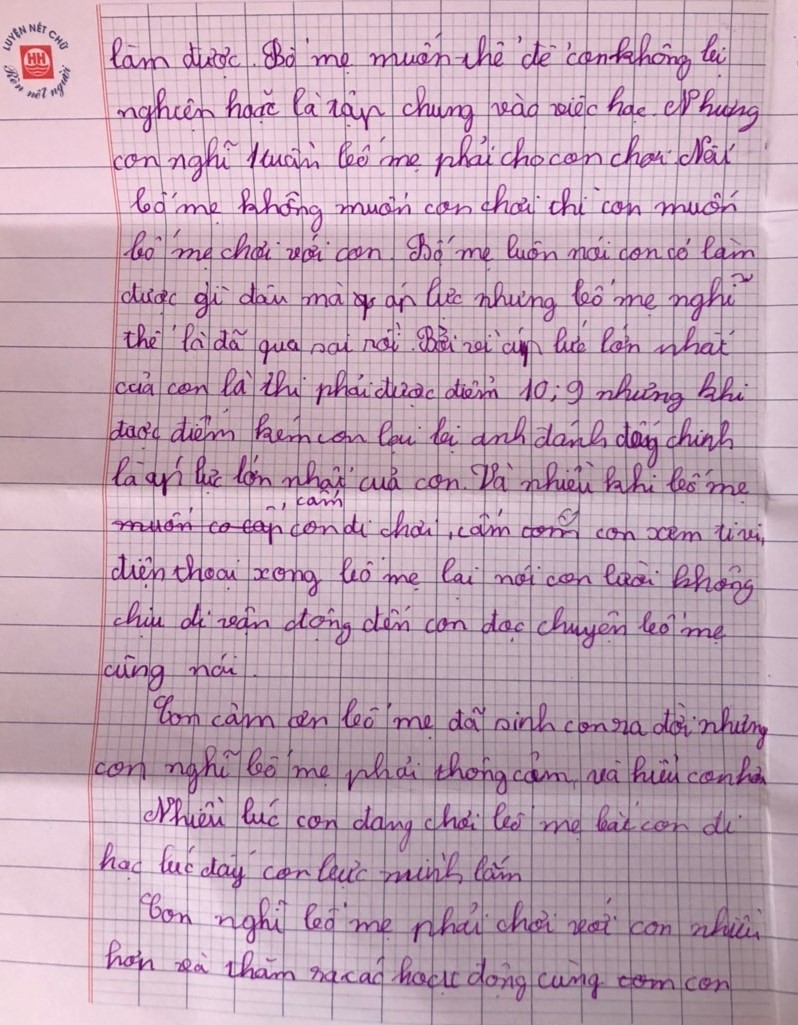 LUYỆN NÉT CHỮ
HH
Rèn nết người
làm được. Bố mẹ muốn thế để con không bị
nghiện hoặc là tập chung vào việc học. Nhưng
con nghĩ 1 tuần bố mẹ phải cho con chơi. Nếu
bố mẹ không muốn con chơi thì con muốn
bố mẹ chơi với con. Bố mẹ luôn nói con có làm
được gì đâu mà áp lực nhưng bố mẹ nghĩ
thế là đã qua sai rồi. Bởi vì áp lực lớn nhất
của con là thi phải được điểm 10; 9 nhưng khi
được điểm kém con lại bị anh đánh đấy chính
là áp lực lớn nhất cuả con. Và nhiều khi bố mẹ
cấm
muốn co cấp con đi chơi, cấm con xem tivi,
điện thoại xong bố mẹ lại nói con lười không
chịu đi vận động đến con đọc chuyện bố mẹ
cũng nói.
Con cảm ơn bố mẹ đã sinh con ra đời nhưng
con nghĩ bố mẹ phải thông cảm, và hiểu con hơn
Nhiều lúc con đang chơi bố mẹ bắt con đi
học lúc đấy con bực mình lắm
Con nghĩ bố mẹ phải chơi với con nhiều
hơn và thăm ra các hoạt động cùng com con